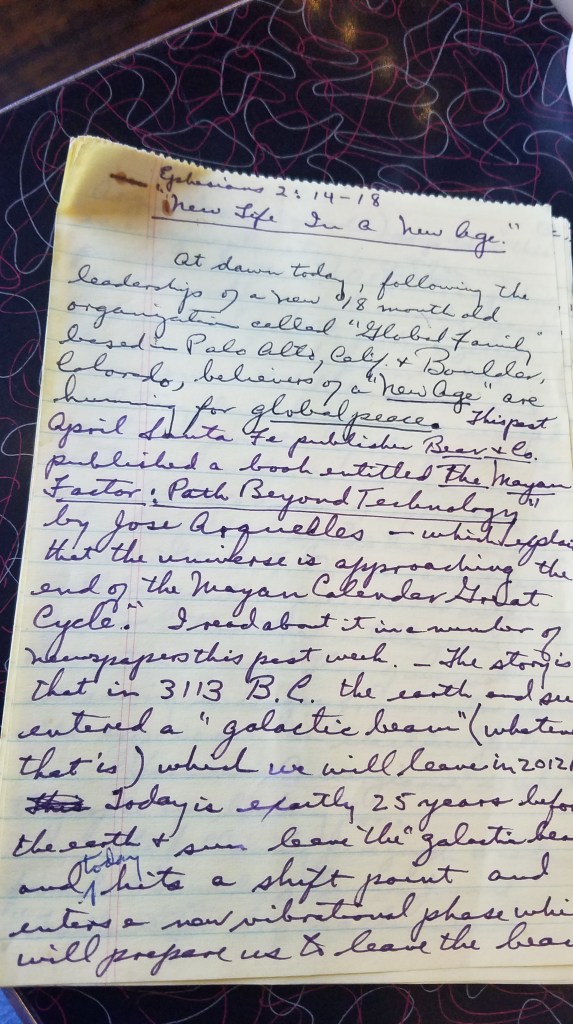 Ephesians 2:14-18
"New Life In a New Age."
At dawn today, following the
leadership of a new 18 month old
organization called "Global Family"
based in Palo Alto, Calif. & Boulder,
Colorado, believers of a "New Age" are
humming for global peace. This past
April Santa Fe publisher Bear & Co.
published a book entitled The Mayan
Factor: Path Beyond Technology"
by Jose Arguelles - which explai
that the universe is approaching the
end of the Mayan Calendar Great
Cycle." I read about it in a number of
newspapers this past week. - The story is
that in 3113 B.C. the earth and su
entered a "galactic beam" (whatev
that is) which we will leave in 2012!
This Today is exactly 25 years befo
the earth & sun leave "the" galactic bea
and today it hits a shift point and
enters a new vibrational phase whi
will prepare us to leave the bea